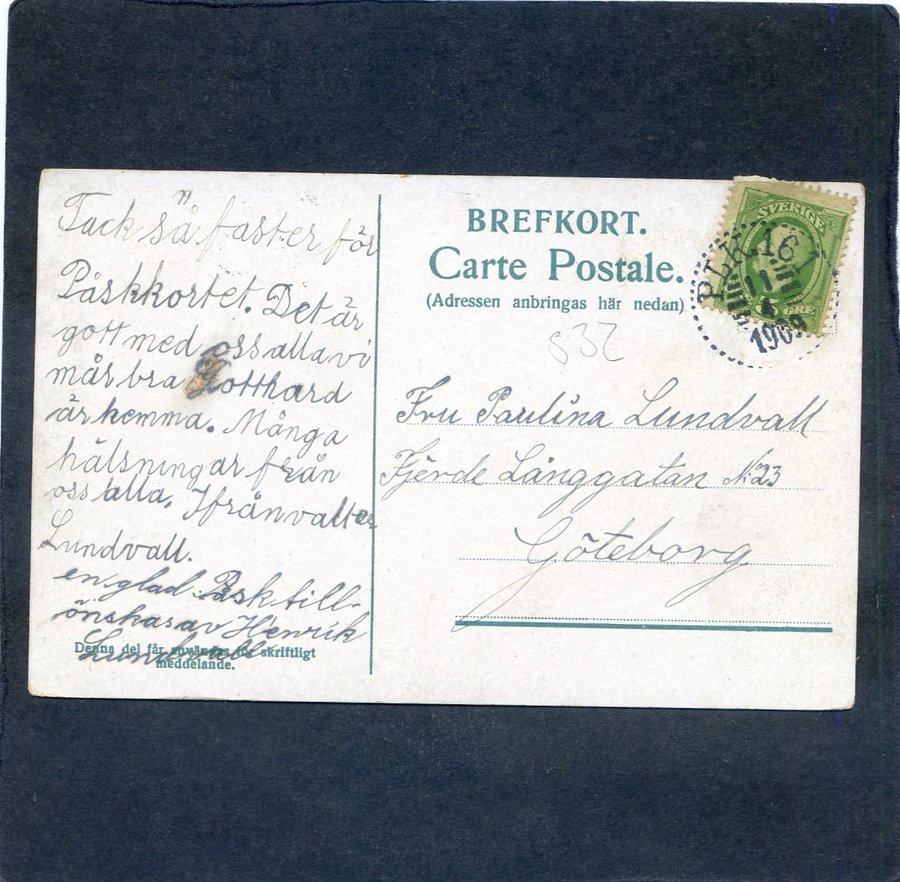 Tack så faster för
Påskkortet. Det är
gott med oss alla vi
mår bra Gotthard
är hemma. Många
hälsningar från
oss alla. Ifrån valter
Lundvall.
en glad Påsk till-
önskas av Henrik
Lundvall
Denna del får användas för skriftligt
meddelande.
BREFKORT.
Carte Postale.
(Adressen anbringas här nedan)
532
SVERIGE
5 ÖRE
PLK 167
11
4
1909
Fru Paulina Lundvall
Fjerde Långgatan No 23
Göteborg